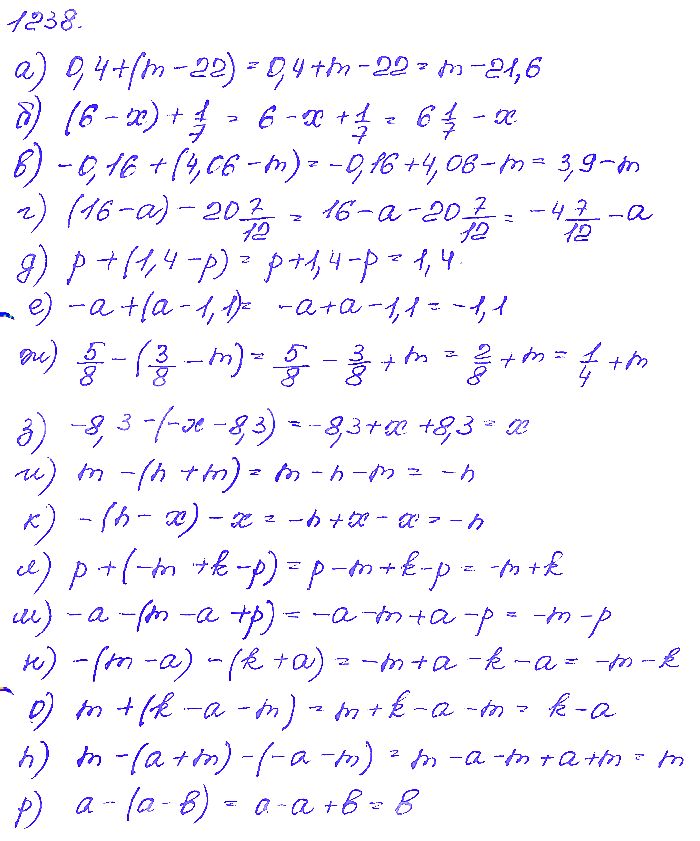 1238.
а) 0,4+(m-22)=0,4+m-22=m-21,6
б) (6-x)+1/7 = 6-x+1/7 = 6 1/7 -x
в) -0,16+(4,06-m)=-0,16+4,06-m=3,9-m
г) (16-a)-20 7/12 = 16-a-20 7/12 = -4 7/12 -a
д) p+(1,4-p)=p+1,4-p=1,4
е) -a+(a-1,1)= -a+a-1,1=-1,1
ж) 5/8 -(3/8 -m)= 5/8 - 3/8 +m = 2/8 +m = 1/4 +m
з) -8,3-(-x-8,3)=-8,3+x+8,3=x
и) m-(n+m)=m-n-m=-n
к) -(n-x)-x=-n+x-x=-n
л) p+(-m+k-p)=p-m+k-p=-m+k
м) -a-(m-a+p)=-a-m+a-p=-m-p
н) -(m-a)-(k+a)=-m+a-k-a=-m-k
о) m+(k-a-m)=m+k-a-m=k-a
п) m-(a+m)-(-a-m)=m-a-m+a+m=m
р) a-(a-в)=a-a+в=в